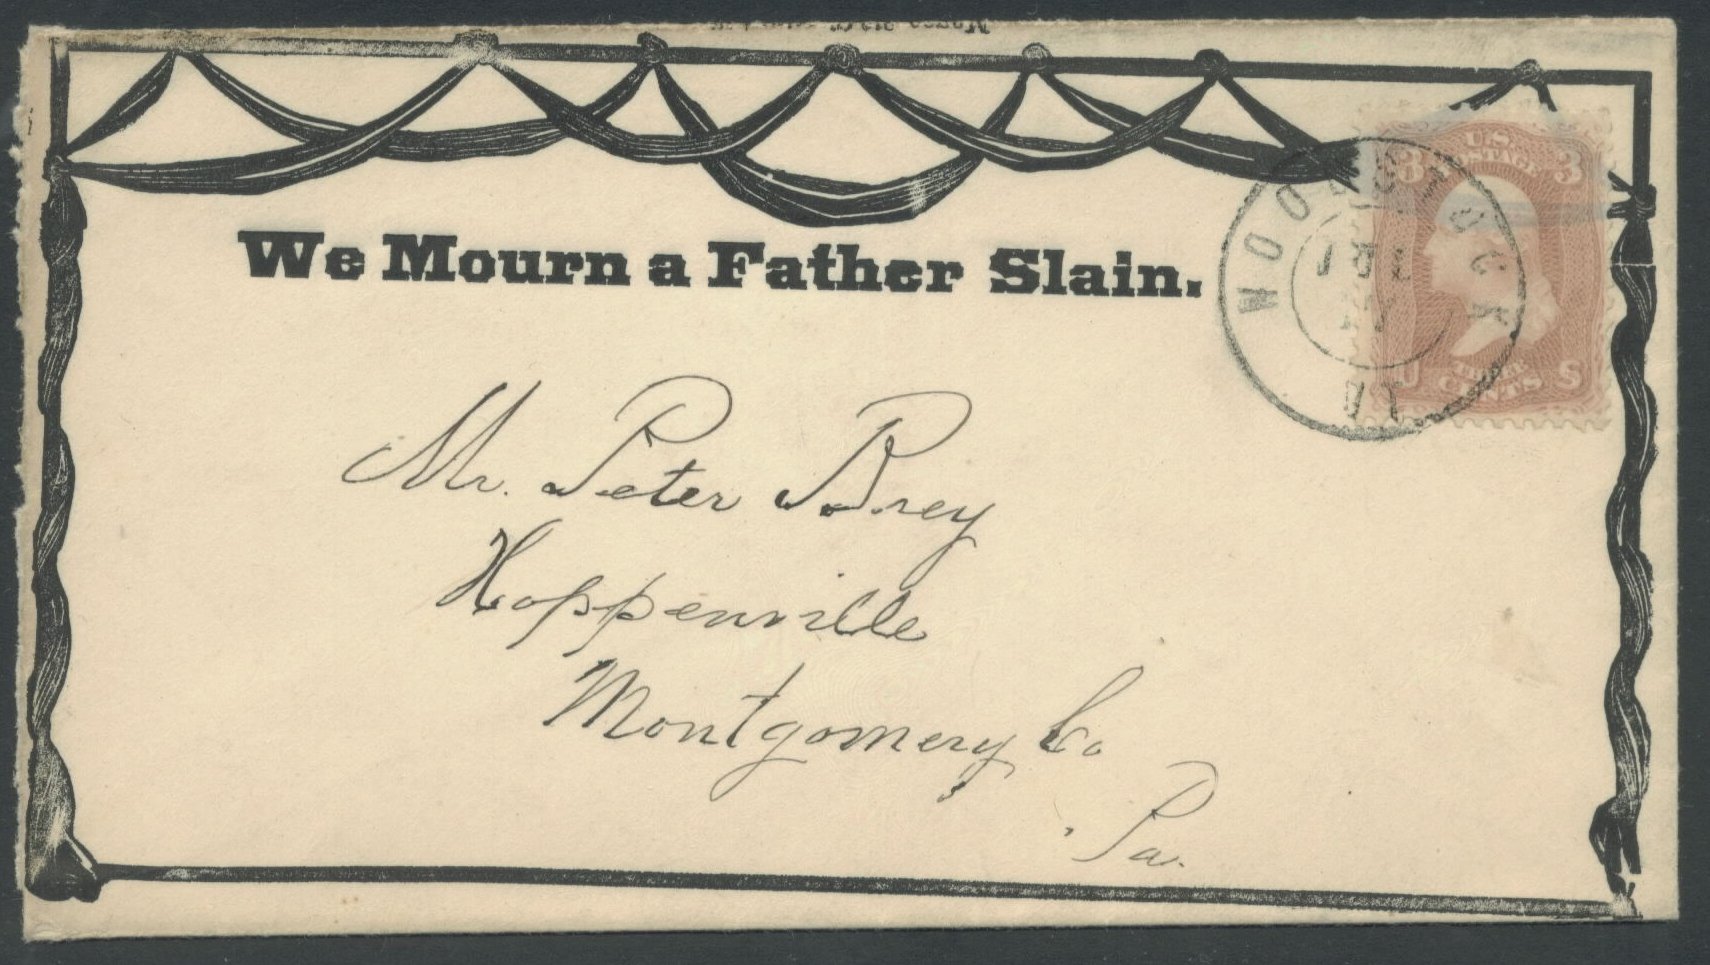 We Mourn a Father Slain.
WOODSTOCK
U.S. POSTAGE
3 3
THREE
U CENTS S
Mr. Peter Brey
Hoppenville
Montgomery Co
Pa.